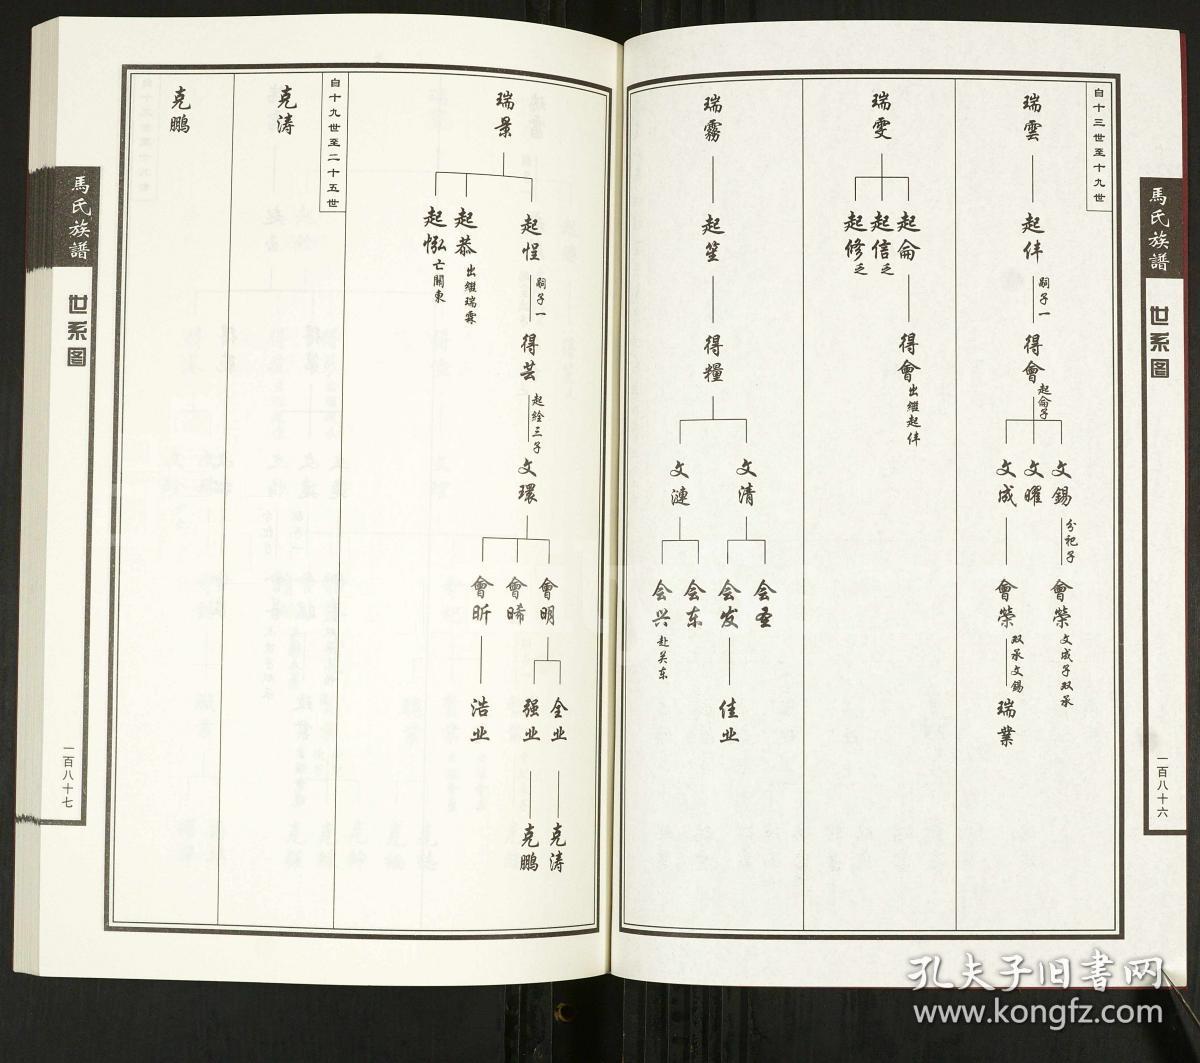 馬氏族譜
世系图
一百八十六
自十三世至十九世
瑞雲
起伴
嗣子一
得會
起侖子
文錫
文曜
文成
分祀子
會榮
文成子双承
會榮
双承文錫
瑞業
瑞雯
起侖
起信
乏
起修
乏
得會
出繼起伴
瑞霧
起笙
得糧
文清
文漣
会圣
会发
会东
会兴
赴关东
佳业
馬氏族譜
世系图
一百八十七
瑞景
起恭
出繼瑞霖
亡關東
嗣子一
得芸
起絵三子
文環
會明
會晞
會昕
全业
强业
浩业
克涛
克鹏
自十九世至二十五世
克涛
克鹏
孔夫子旧书网
www.kongfz.com